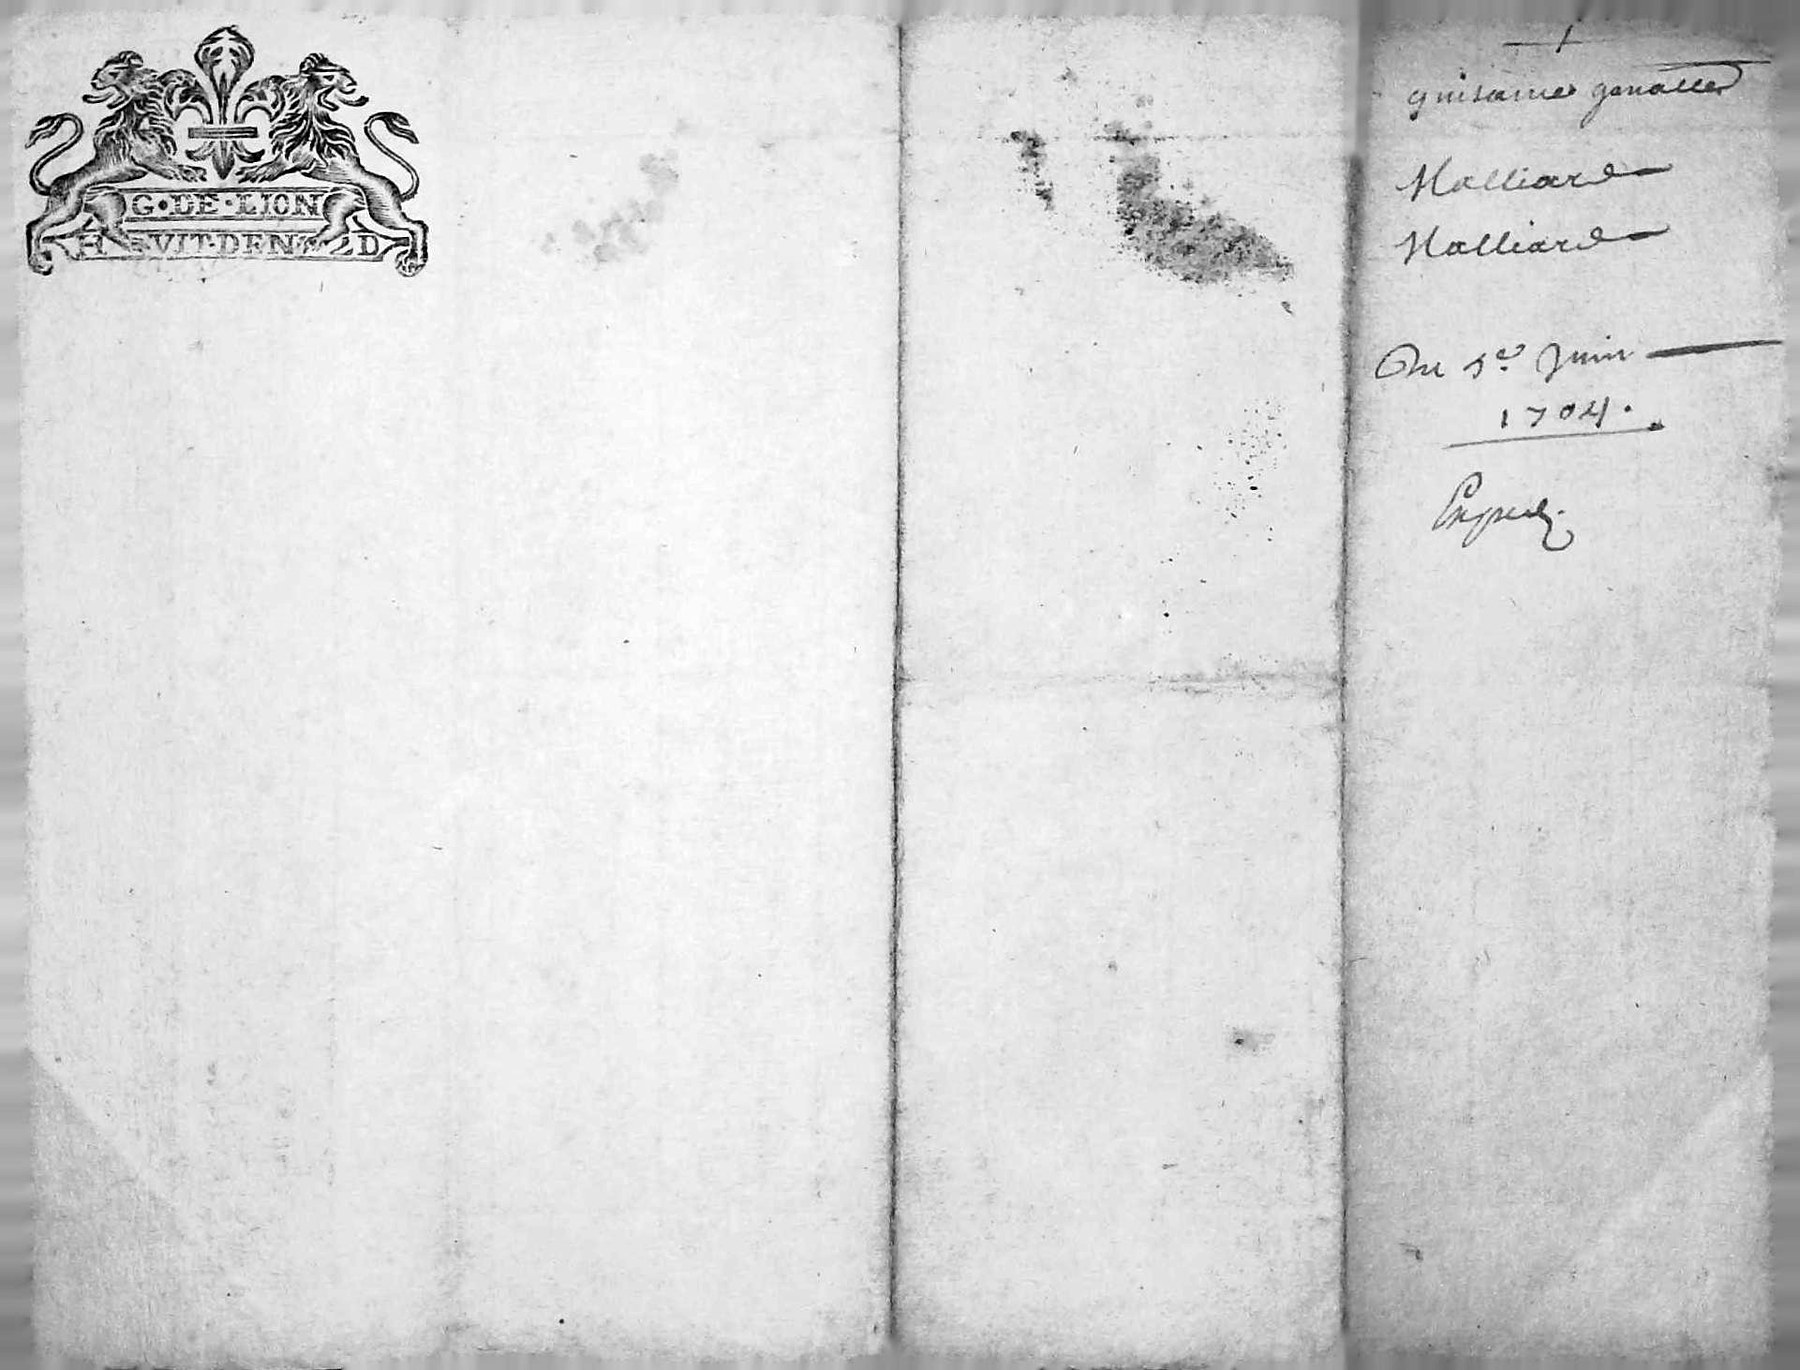 G·DE·LION
H VIT·DEN 2D
quitance genalle
Halliard
Halliard
Du 5e Juin
1704.